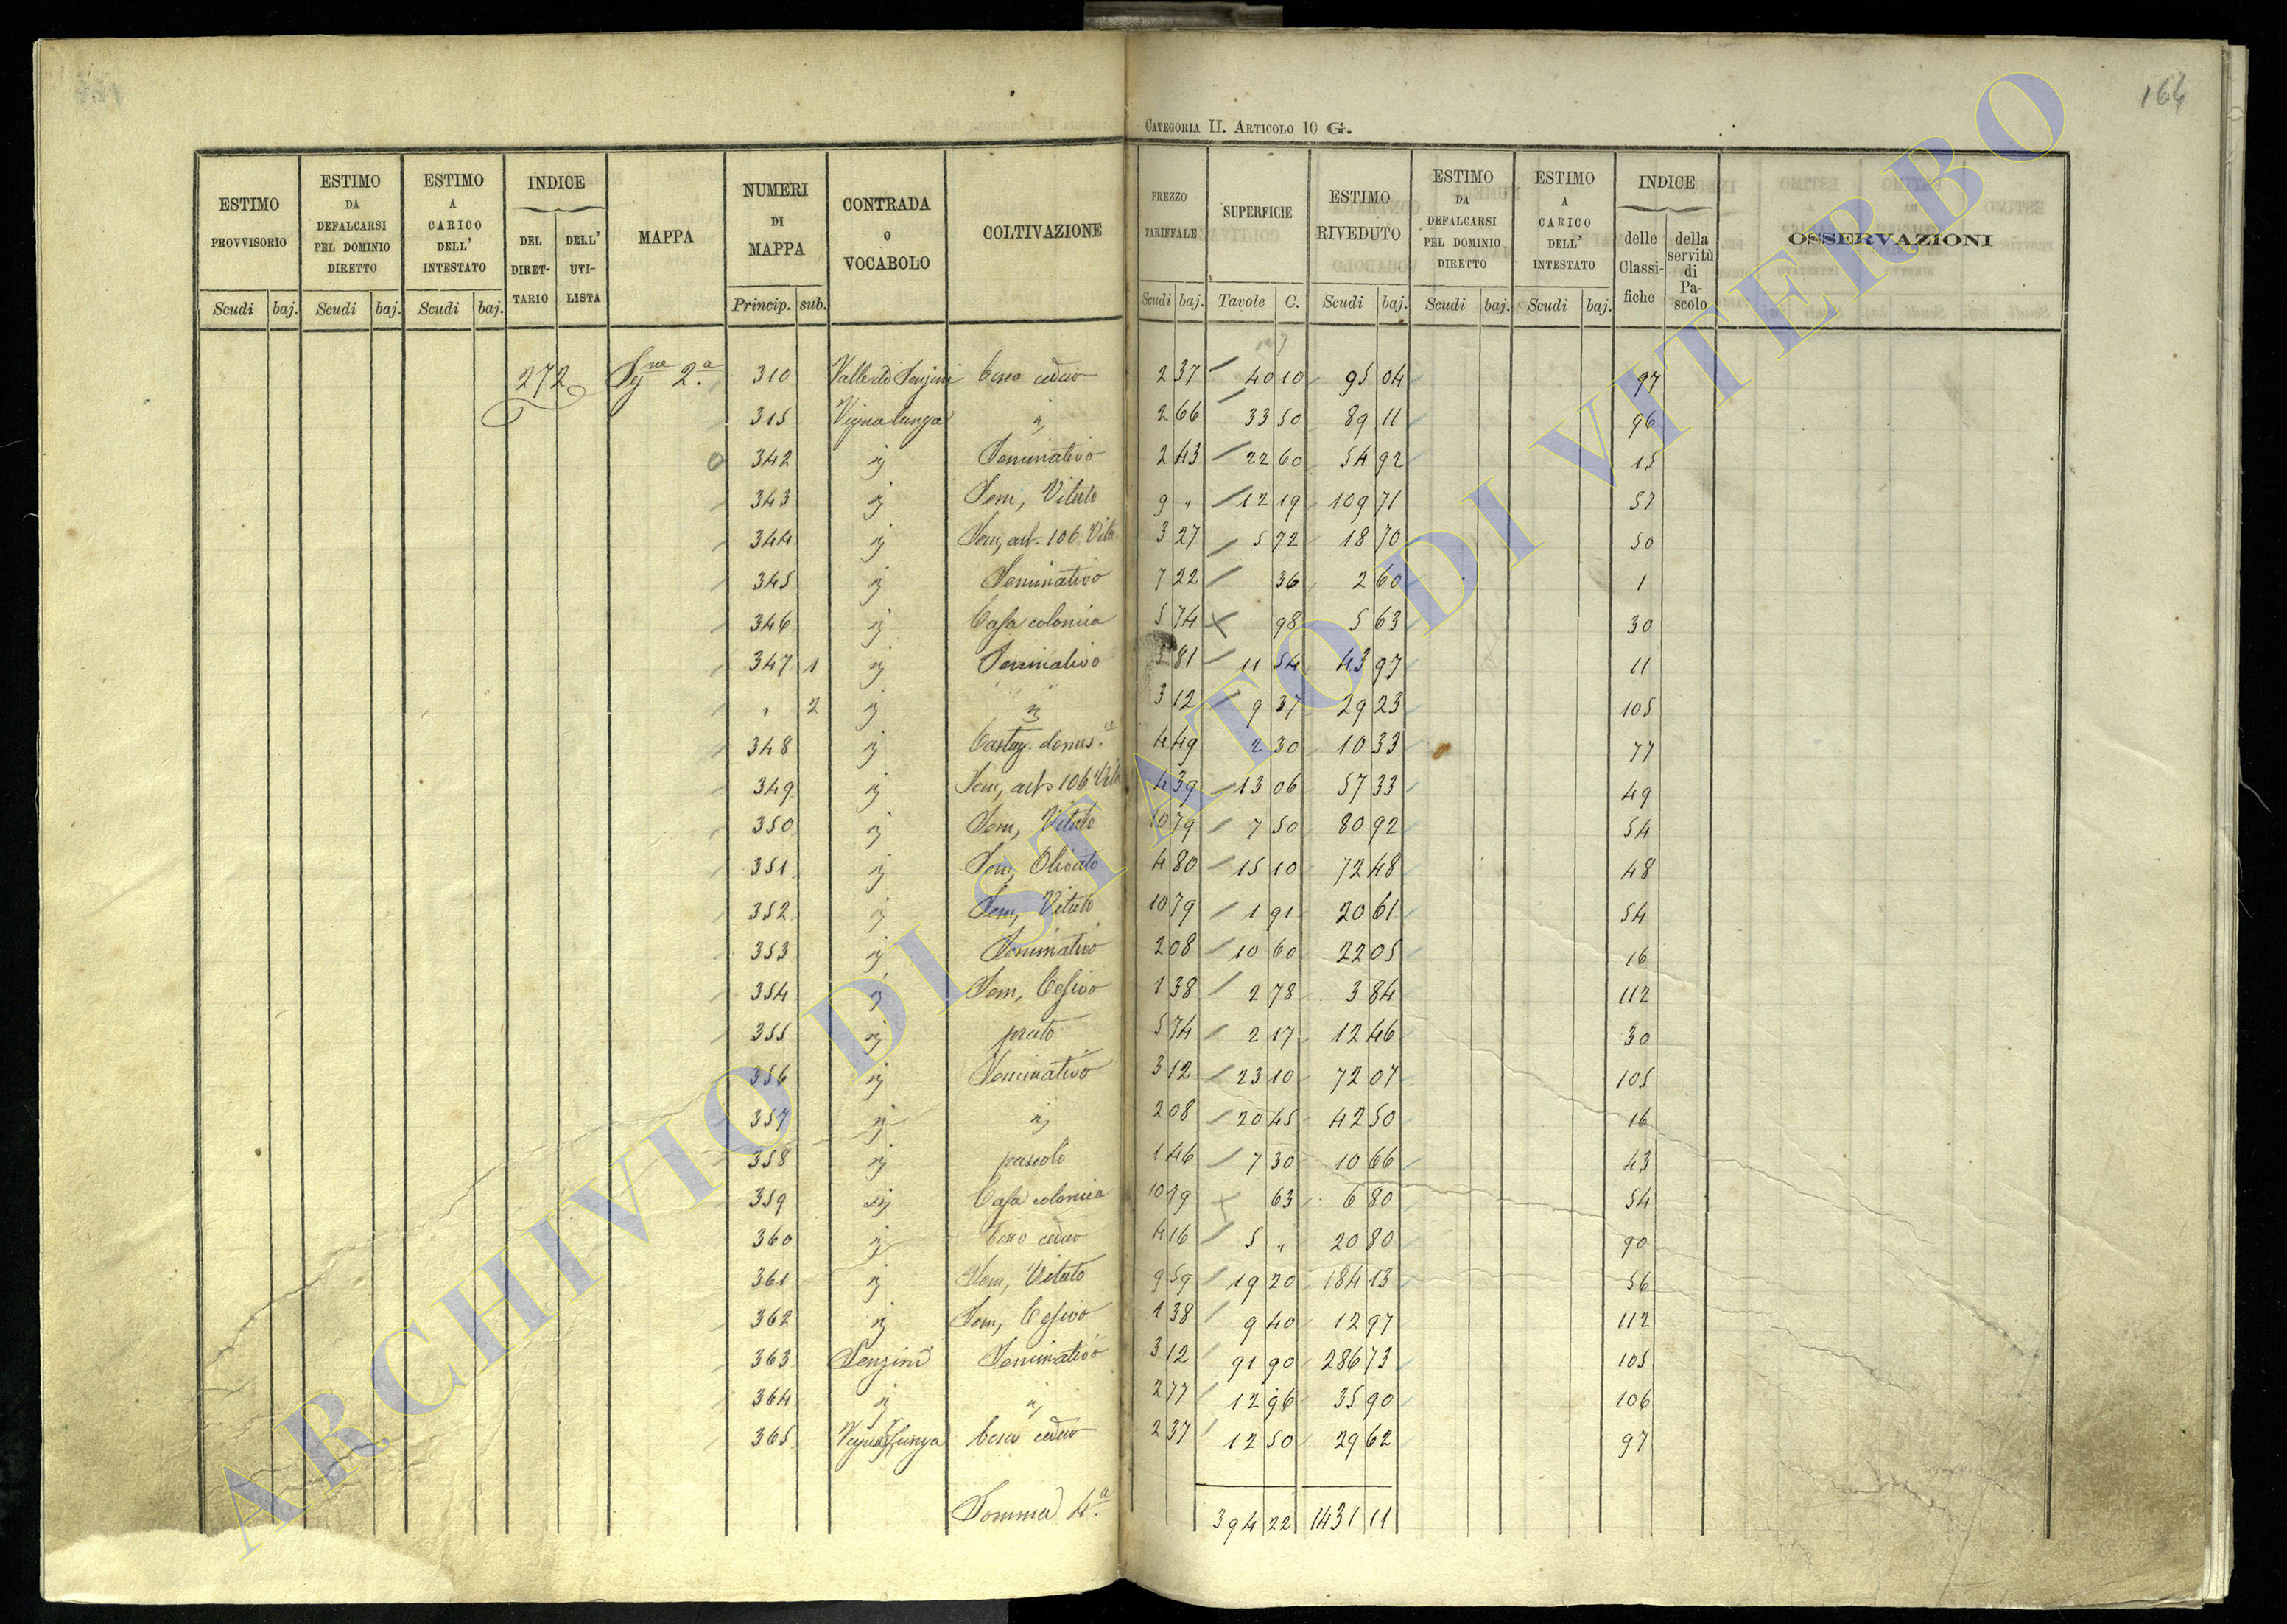 164
CATEGORIA II. ARTICOLO 10 G.
ESTIMO PROVVISORIO Scudi baj.
ESTIMO DA DEFALCARSI PEL DOMINIO DIRETTO Scudi baj.
ESTIMO A CARICO DELL' INTESTATO Scudi baj.
INDICE DEL DIRET-TARIO DELL' UTI-LISTA
MAPPA
NUMERI DI MAPPA Princip. sub.
CONTRADA o VOCABOLO
COLTIVAZIONE
PREZZO TARIFFALE Scudi baj.
SUPERFICIE Tavole C.
ESTIMO RIVEDUTO Scudi baj.
ESTIMO DA DEFALCARSI PEL DOMINIO DIRETTO Scudi baj.
ESTIMO A CARICO DELL' INTESTATO Scudi baj.
INDICE delle Classi-fiche della servitù di Pa-scolo
OSSERVAZIONI
272 2.a 310 Valle di Senzini bosco ceduo 2 37 40 10 95 04 97
315 Vignalunga " 2 66 33 50 89 11 96
342 " Seminativo 2 43 22 60 54 92 15
343 " Sem, Vitato 9 " 12 19 109 71 57
344 " Sem, art. 106 Vita. 3 27 5 72 18 70 50
345 " Seminativo 7 22 36 2 60 1
346 " Casa colonica 5 74 98 5 63 30
347 1 " Seminativo 3 81 11 54 43 97 11
" 2 " " 3 12 9 37 29 23 105
348 " Castag. domes.ca 4 49 2 30 10 33 77
349 " Sem, art. 106 Vita 4 39 13 06 57 33 49
350 " Sem, Vitato 10 79 7 50 80 92 54
351 " Sem, Olivato 4 80 15 10 72 48 48
352 " Sem, Vitato 10 79 1 91 20 61 54
353 " Seminativo 2 08 10 60 22 05 16
354 " Sem, Cesivo 1 38 2 78 3 84 112
355 " prato 5 74 2 17 12 46 30
356 " Seminativo 3 12 23 10 72 07 105
357 " " 2 08 20 45 42 50 16
358 " pascolo 1 46 7 30 10 66 43
359 " Casa colonica 10 79 63 6 80 54
360 " bosco ceduo 4 16 5 " 20 80 90
361 " Sem, Vitato 9 59 19 20 184 13 56
362 " Sem, Cesivo 1 38 9 40 12 97 112
363 Senzini Seminativo 3 12 91 90 286 73 105
364 " " 2 77 12 96 35 90 106
365 Vigna lunga bosco ceduo 2 37 12 50 29 62 97
Somma 4.a 394 22 1431 11
ARCHIVIO DI STATO DI VITERBO